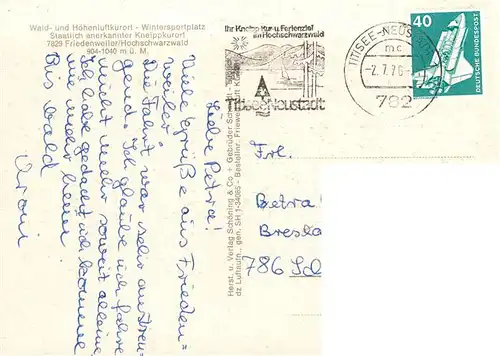 Wald- und Höhenluftkurort - Wintersportplatz
Staatlich anerkannter Kneippkurort
7829 Friedenweiler/Hochschwarzwald
904-1040 m ü. M.
Ihr Kneipp Kur- u. Ferienziel
im Hochschwarzwald
Titisee-Neustadt
TITISEE-NEUSTADT
mc
-2.7.76
782
40
DEUTSCHE BUNDESPOST
Liebe Petra!
Viele Grüße aus Frieden=
weiler
Die Fahrt war sehr anstren-
gend. Ich glaube ich fahre
nicht mehr soweit alleine
Ich habe gedacht ich komme
nie mehr heim
Bis bald
Herst. u. Verlag Schöning & Co + Gebrüder
Frl.
Petra
Bresla
786 Sch